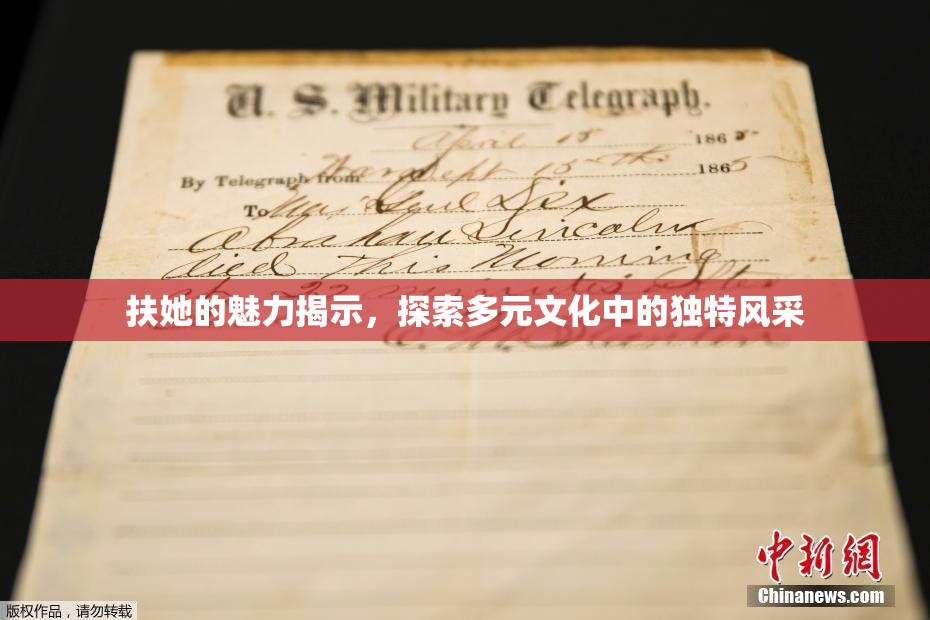 U. S. Military Telegraph.
April 15 1865
By Telegraph from War Dept 15th 1865
To Maj Genl Dix
Abraham Lincoln
died This Morning
at 22 minutes after
扶她的魅力揭示，探索多元文化中的独特风采
E. M. Stanton
中新网
Chinanews.com
版权作品，请勿转载